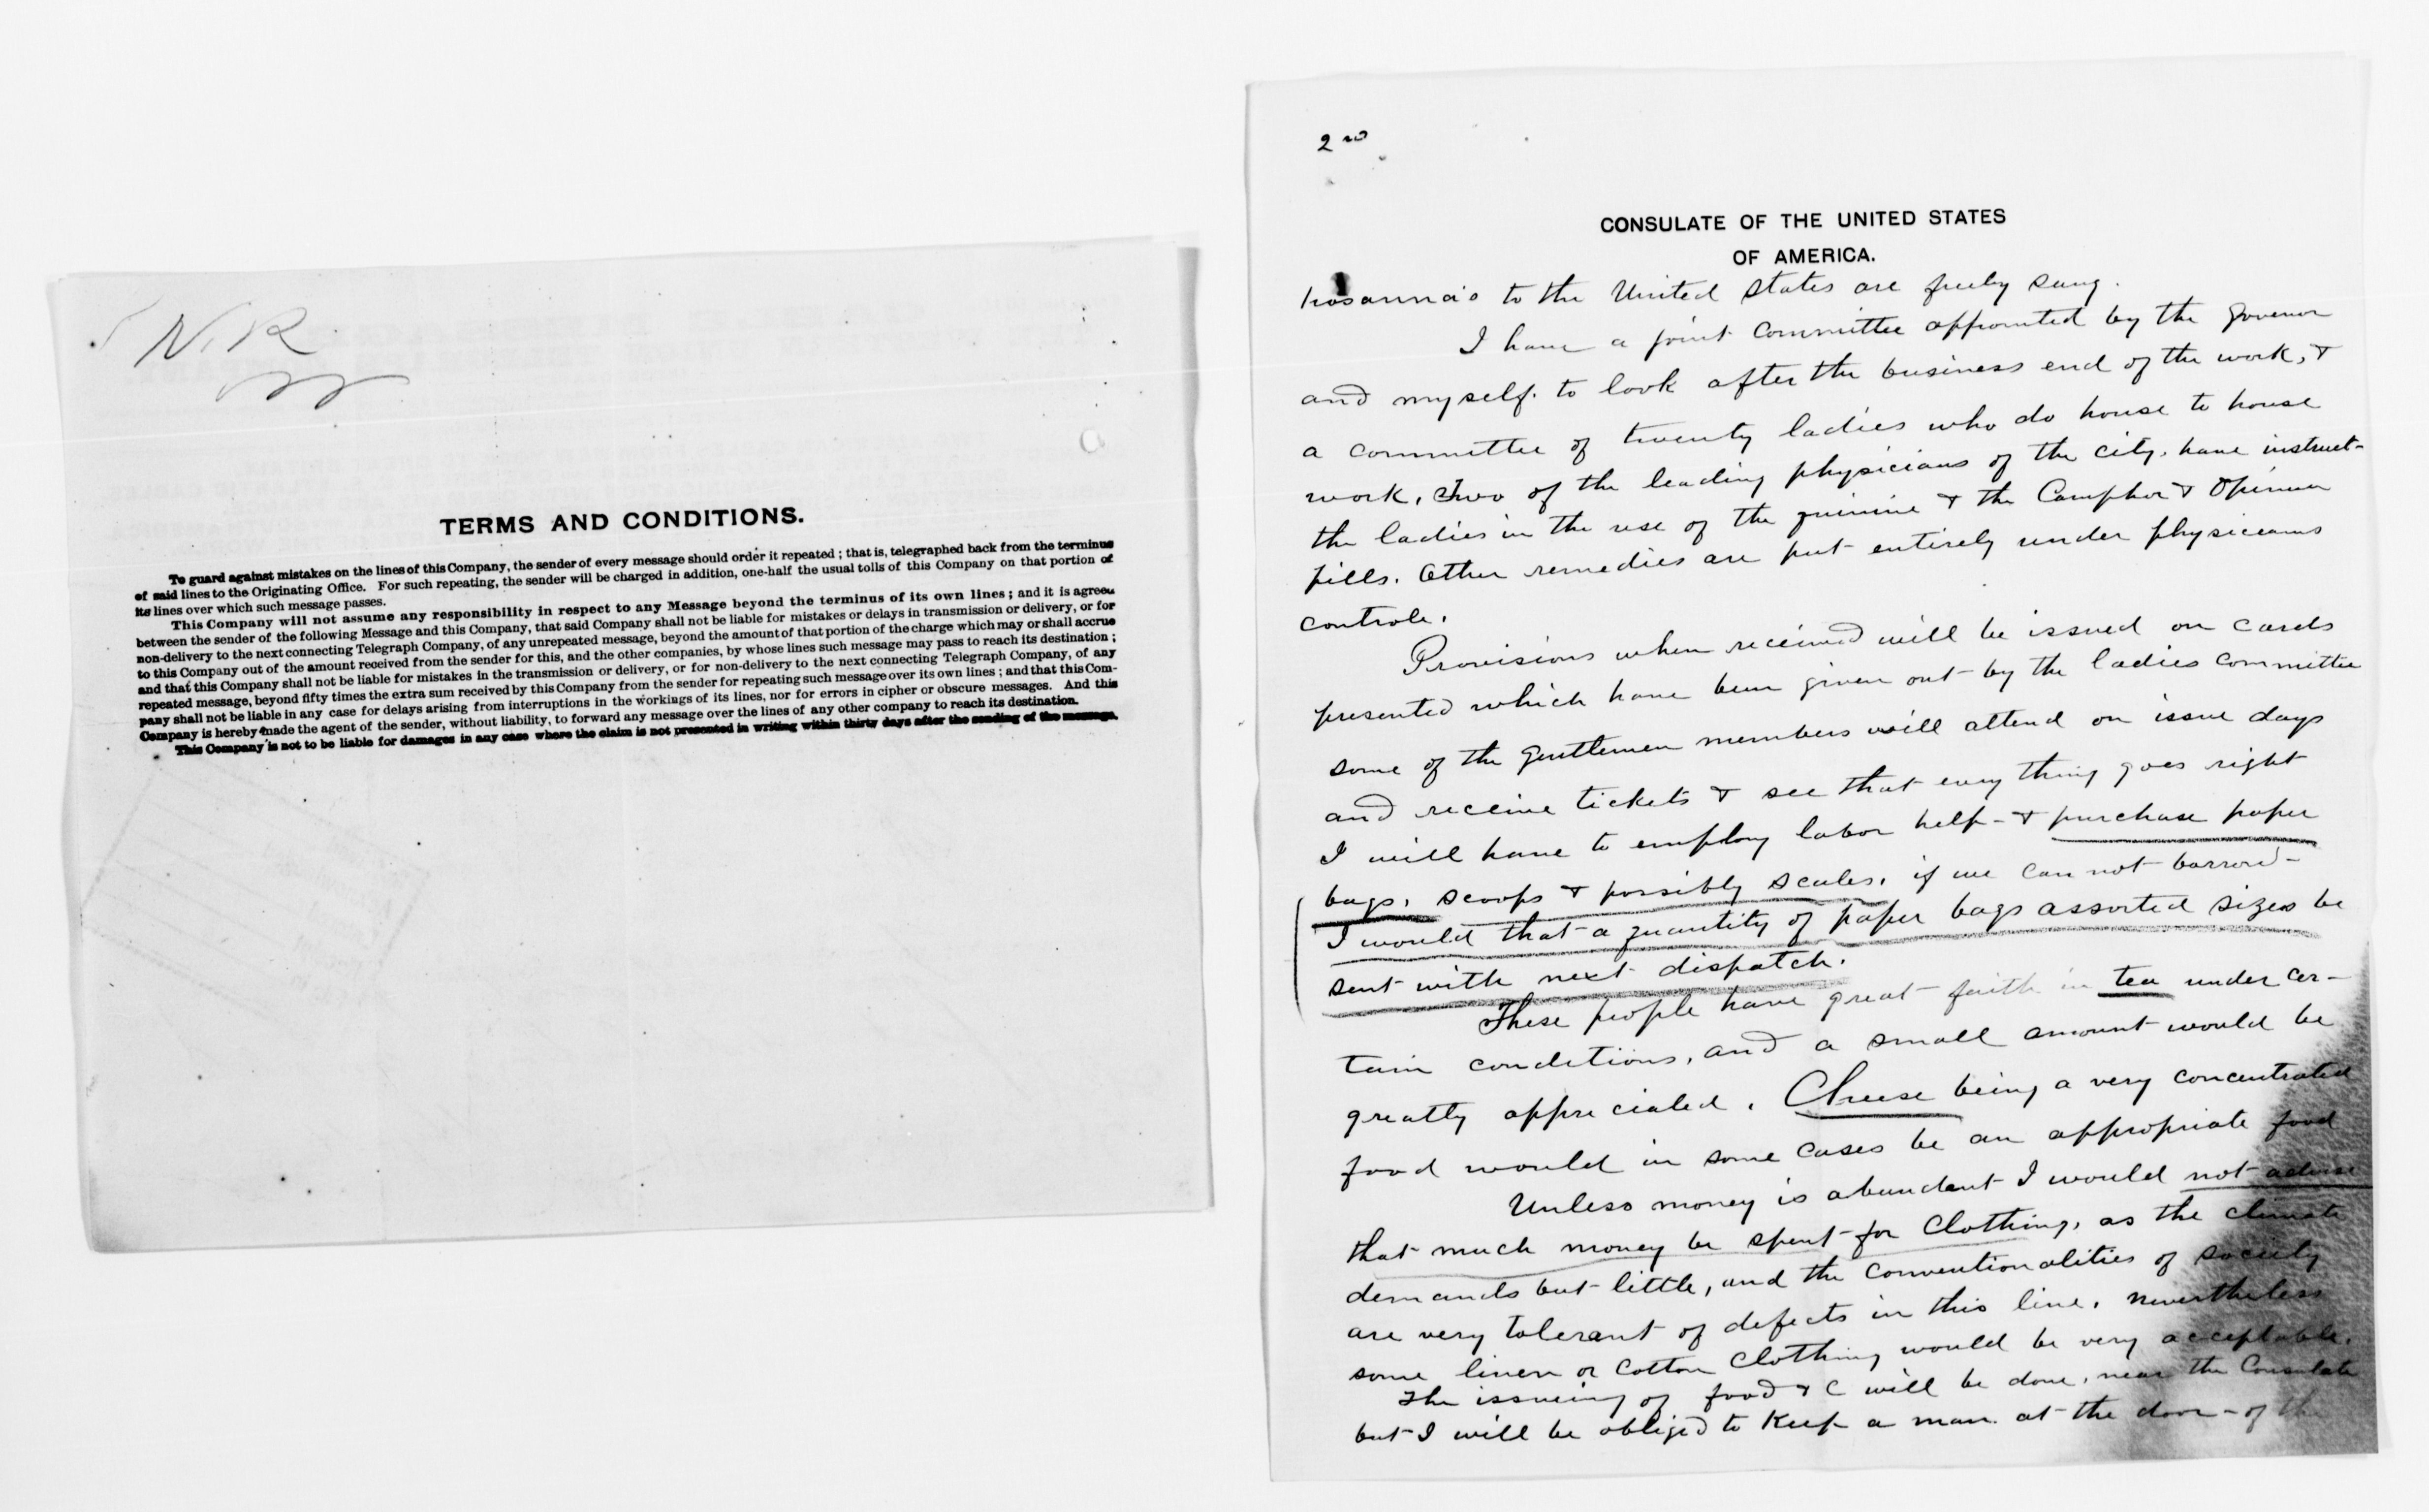 N. R.
TERMS AND CONDITIONS.
To guard against mistakes on the lines of this Company, the sender of every message should order it repeated ; that is, telegraphed back from the terminus
of said lines to the Originating Office. For such repeating, the sender will be charged in addition, one-half the usual tolls of this Company on that portion of
its lines over which such message passes.
This Company will not assume any responsibility in respect to any Message beyond the terminus of its own lines ; and it is agreed
between the sender of the following Message and this Company, that said Company shall not be liable for mistakes or delays in transmission or delivery, or for
non-delivery to the next connecting Telegraph Company, of any unrepeated message, beyond the amount of that portion of the charge which may or shall accrue
to this Company out of the amount received from the sender for this, and the other companies, by whose lines such message may pass to reach its destination ;
and that this Company shall not be liable for mistakes in the transmission or delivery, or for non-delivery to the next connecting Telegraph Company, of any
repeated message, beyond fifty times the extra sum received by this Company from the sender for repeating such message over its own lines ; and that this Com-
pany shall not be liable in any case for delays arising from interruptions in the workings of its lines, nor for errors in cipher or obscure messages. And this
Company is hereby made the agent of the sender, without liability, to forward any message over the lines of any other company to reach its destination.
This Company is not to be liable for damages in any case where the claim is not presented in writing within thirty days after the sending of the message.
2nd
CONSULATE OF THE UNITED STATES
OF AMERICA.
hosanna's to the United States are freely sung.
I have a joint Committee appointed by the govenor
and myself. to look after the business end of the work, &
a committee of twenty ladies who do house to house
work, Two of the leading physicians of the city. have instruct-
the ladies in the use of the quinine & the Camphor & Opium
pills. Other remedies are put entirely under physicians
controle.
Provisions when received will be issued on cards
presented which have been given out by the ladies committee
some of the gentlemen members will attend on issue days
and receive tickets & see that every thing goes right
I will have to employ labor help - & purchase paper
bags, scoops & possibly scales. if we can not borrow -
I would that a quantity of paper bags assorted sizes be
sent with next dispatch.
These people have great faith in tea under cer-
tain conditions, and a small amount would be
greatly appreciated. Cheese being a very concentrated
food would in some cases be an appropriate food
Unless money is abundant I would not advise
that much money be spent for Clothing, as the climate
demands but little, and the conventionalities of society
are very tolerant of defects in this line. nevertheless
some linen or Cotton Clothing would be very acceptable.
The issueing of food & C will be done, near the Consulate
but I will be obliged to Keep a man at the door - of the